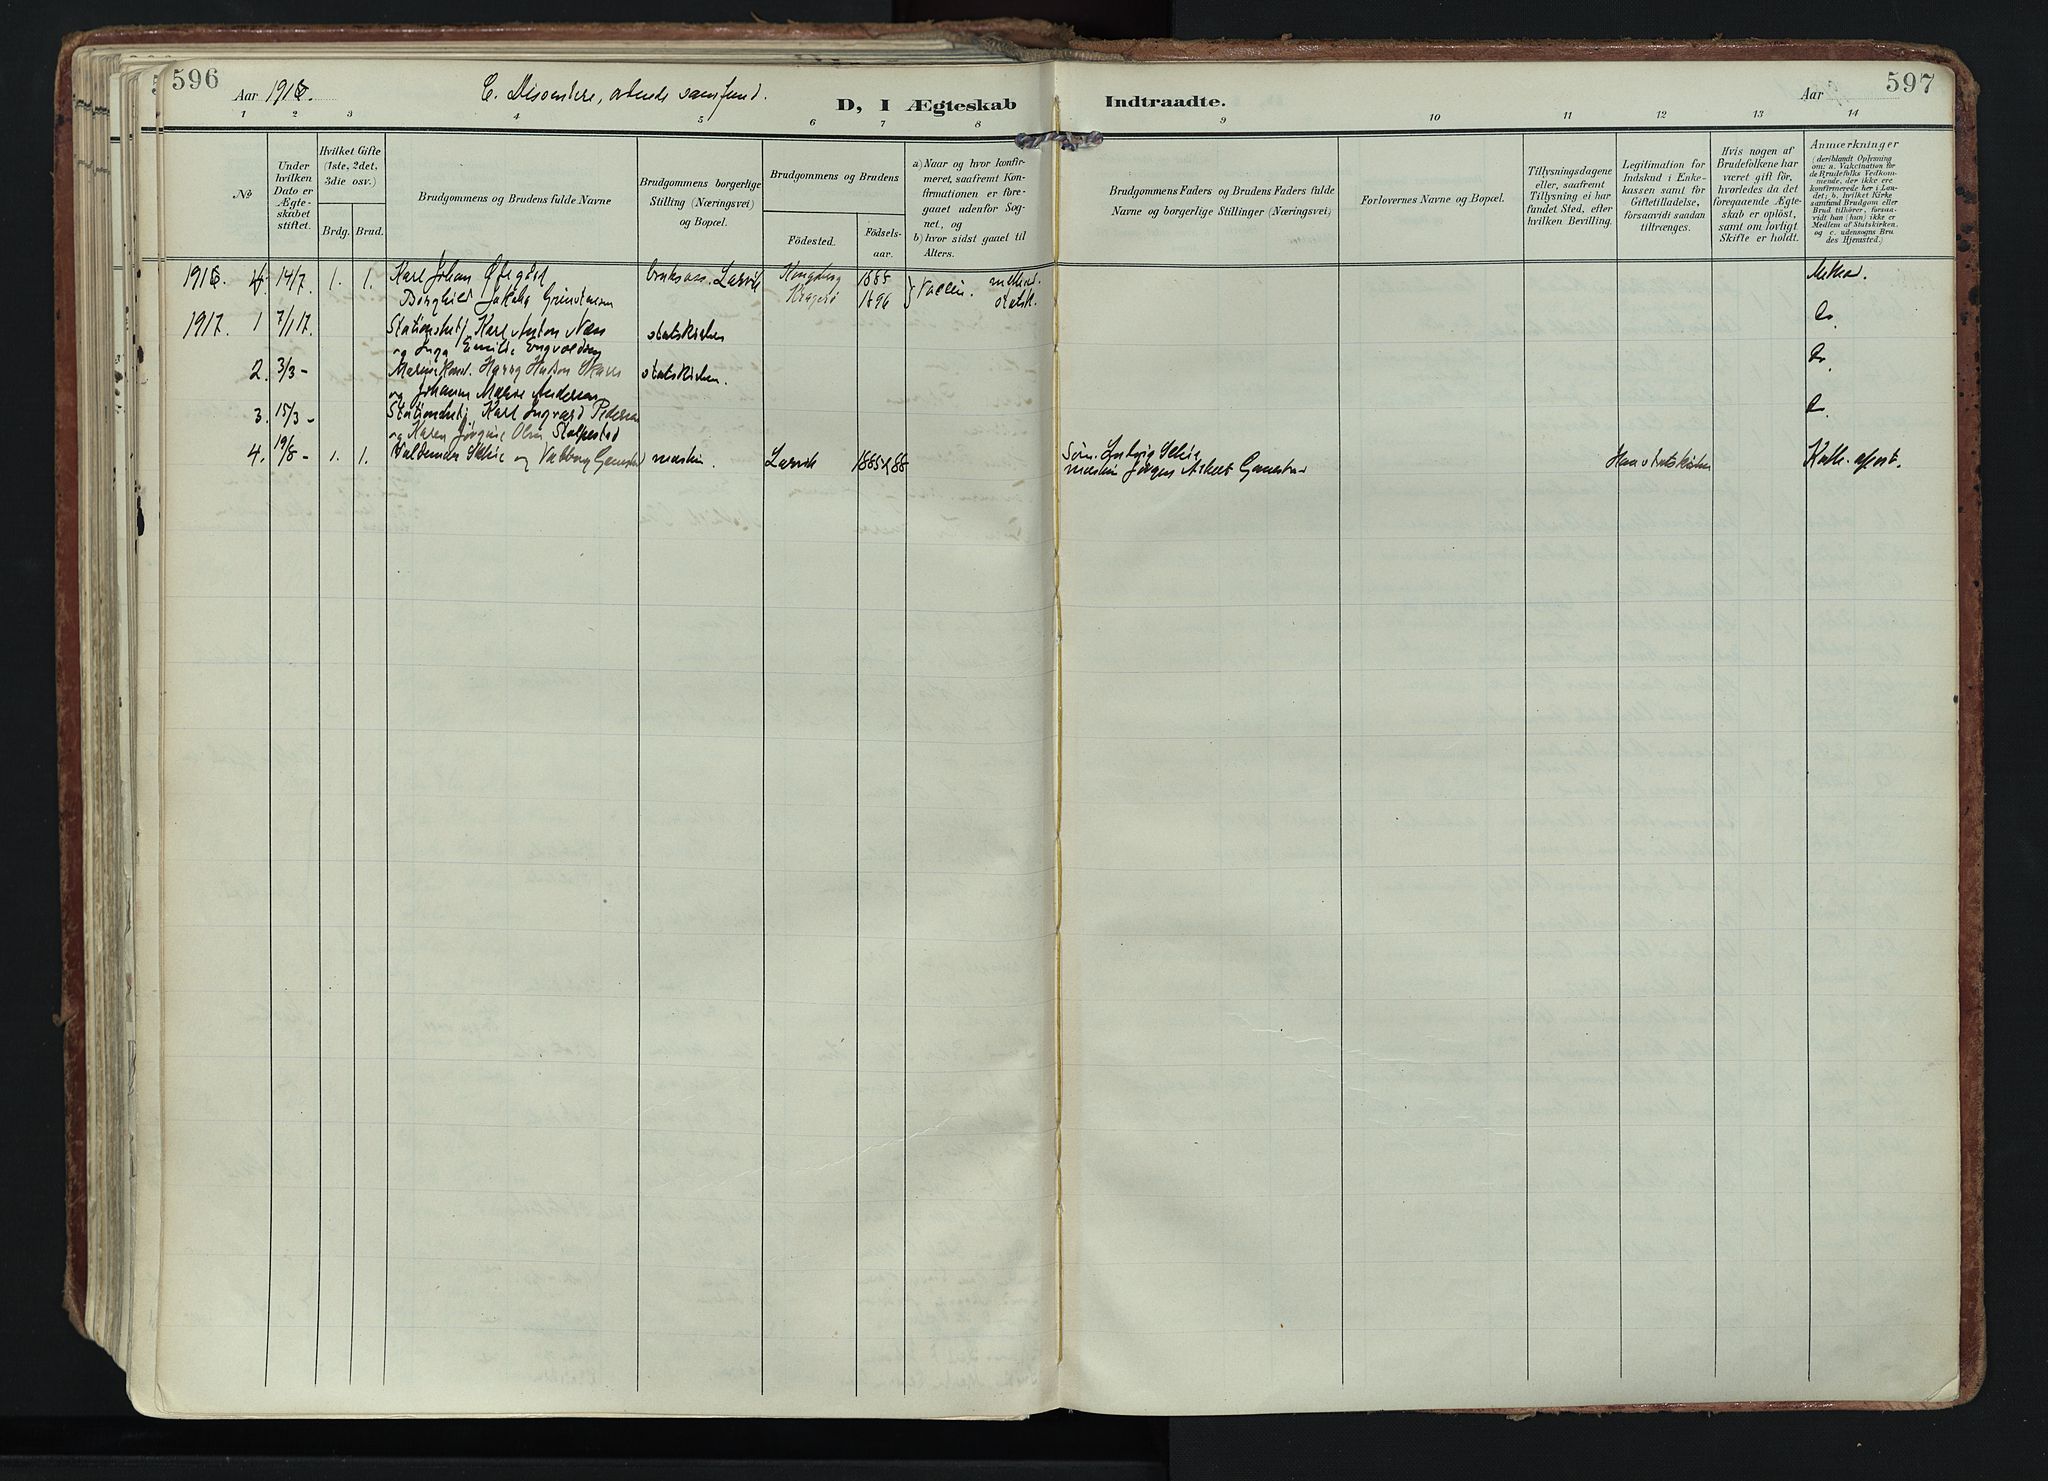 596
Aar 1916.
C. Dissentere, udenfor samfund.
D, I Ægteskab
Indtraadte.
Aar
597
1 2 3 4 5 6 7 8 9 10 11 12 13 14
№
Under hvilken Dato er Ægteskabet stiftet.
Hvilket Gifte (1ste, 2det, 3die osv.)
Brdg. Brud.
Brudgommens og Brudens fulde Navne
Brudgommens borgerlige Stilling (Næringsvei) og Bopæl.
Brudgommens og Brudens
Födested.
Födselsaar.
a) Naar og hvor konfirmeret, saafremt Konfirmationen er foregaaet udenfor Sognet, og
b) hvor sidst gaaet til Alters.
Brudgommens Faders og Brudens Faders fulde Navne og borgerlige Stillinger (Næringsvei)
Forlovernes Navne og Bopæl.
Tillysningsdagene eller, saafremt Tillysning ei har fundet Sted, efter hvilken Bevilling.
Legitimation for Indskud i Enkekassen samt for Giftetilladelse, forsaavidt saadan tiltrænges.
Hvis nogen af Brudefolkene har været gift för, hvorledes da det foregaaende Ægteskab er oplöst, samt om lovligt Skifte er holdt.
Anmærkninger
(deriblandt Oplysning om: a. Vakcination for de Brudefolks Vedkommende, der ikke ere konfirmerede her i Landet; b. hvilket Kirkesamfund Brudgom eller Brud tilhörer, forsaavidt han (hun) ikke er Medlem af Statskirken, og c. udensogns Brudes Hjemsted.)
1916 4 14/7 1. 1. Karl Johan Larvik Kongsberg 1888 Metod.
Borghild Jakoba Kragerø 1896 statsk.
1917. 1 7/1 17. Stationsbetj. Karl Anton Næss statskirken Do.
og Inga Emilie Engvoldsen
2. 3/3 - Harry statskirken. Do.
og Johanne Marie Andersen
3. 15/3 - Stationsbetj. Karl Ingvard Pedersen Do.
og Karen Jørgine Olsen Stolpestad
4. 19/8 - 1. 1. Valdemar og Valborg maskin. Larvik 1885 & 88 Ludvig Hun statskirken Kath. apost.
maskin Jørgen